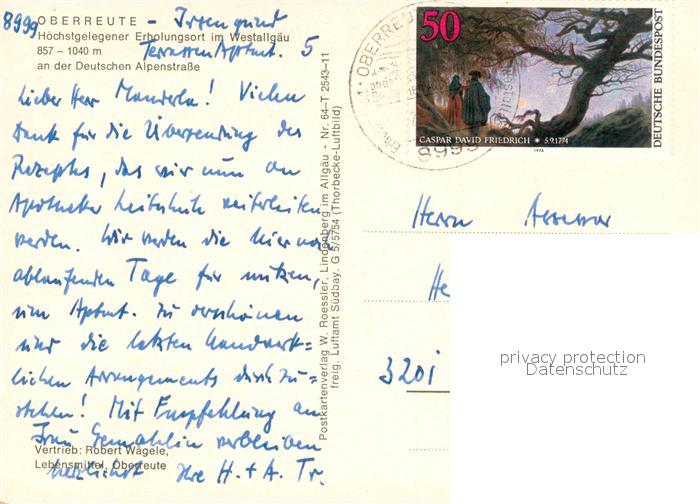 8999
OBERREUTE - Irsengund
Höchstgelegener Erholungsort im Westallgäu
857 – 1040 m Terrassen Aptmt. 5
an der Deutschen Alpenstraße
Lieber Herr Manderla! Vielen
Dank für die Übersendung des
Rezeptes, das wir nun an
Apotheker weiterleiten
werden. Wir werden die hier noch
ablaufenden Tage für nutzen,
um Aptmt. zu verschönen
und die letzten handwerk=
lichen Arrangements durchzu=
stehen! Mit Empfehlung an
Frau Gemahlin verbleiben
herzlichst Ihre H. + A. Tr.
Vertrieb: Robert Wägele,
Lebensmittel, Oberreute
Postkartenverlag W. Roessler, Lindenberg im Allgäu - Nr. 64–T 2543–11
freig. Luftamt Südbay. G 5/5754 (Thorbecke-Luftbild)
OBERREUTE
8999
50
DEUTSCHE BUNDESPOST
CASPAR DAVID FRIEDRICH * 5.9.1774
1974
Herrn Assessor
He
3201
privacy protection
Datenschutz